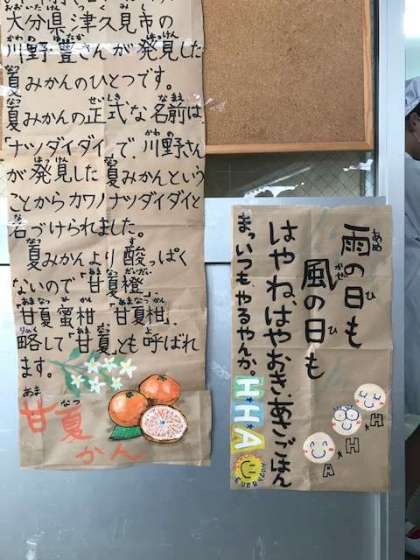 大分県津久見市の
川野豊さんが発見した
夏みかんのひとつです。
夏みかんの正式な名前は、
「ナツダイダイ」で、川野さん
が発見した夏みかんという
ことからカワノナツダイダイと
名づけられました。
夏みかんより酸っぱく
ないので「甘夏橙」、
「甘夏蜜柑」「甘夏柑」、
略して「甘夏」とも呼ばれ
ます。
甘夏
かん
雨の日も
風の日も
はやね、はやおき、あさごはん
まっ、いつもやるやんか。
H.H.A
H
H
A